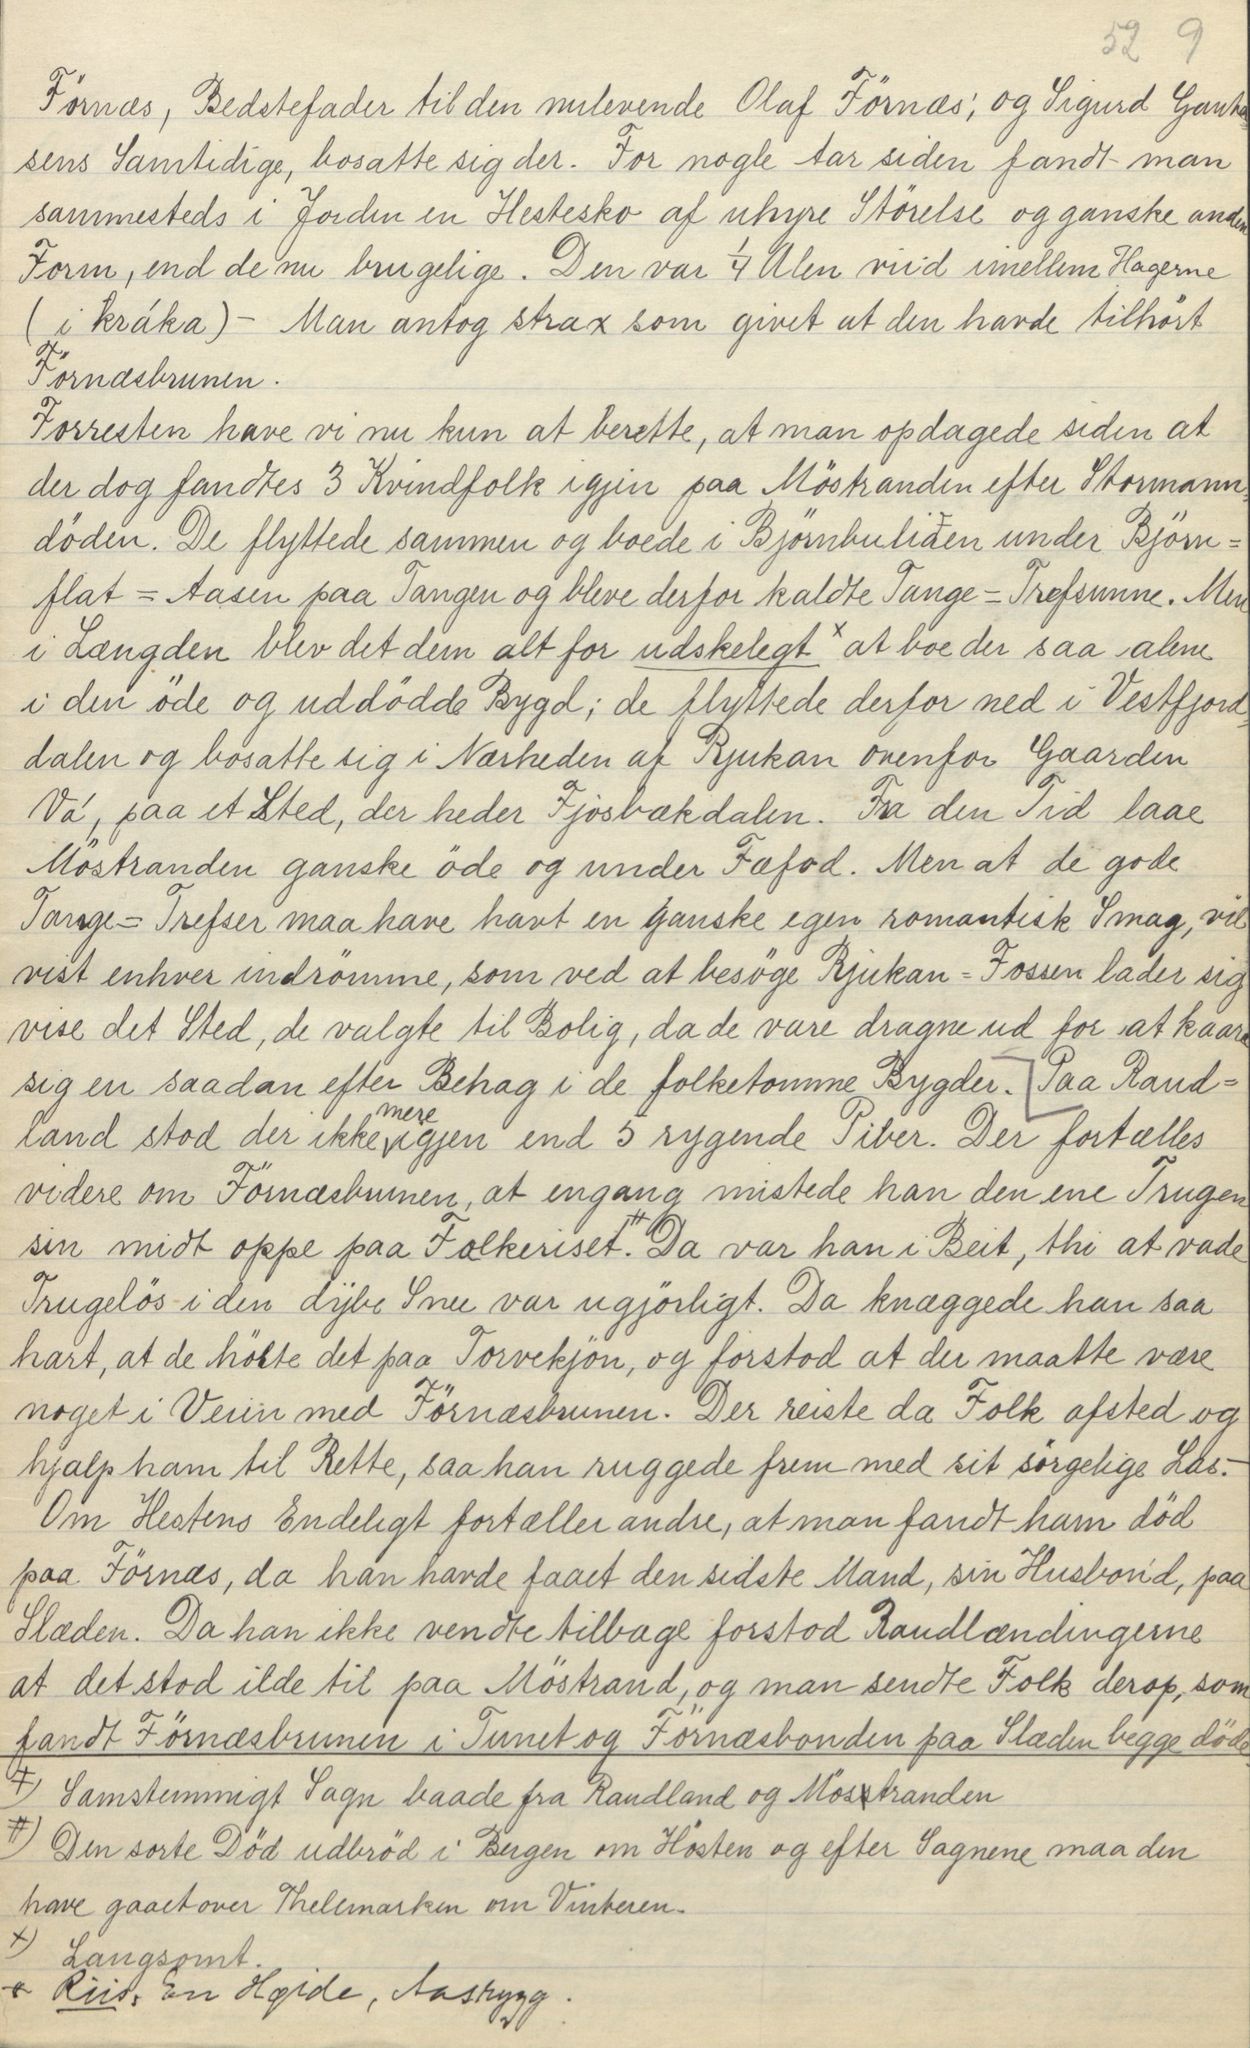 52 9
Förnæs, Bedstefader til den nulevende Olaf Förnæs, og Sigurd Gauta
sens Samtidige, bosatte sig der. For nogle Aar siden fandt man
sammesteds i Jorden en Hestesko af uhyre Störelse og ganske anden
Form, end de nu brugelige. Den var 1/4 Alen viid imellem Hagerne
(i kráka) - Man antog strax som givet at den havde tilhört
Förnæsbrunen.
Forresten have vi nu kun at berette, at man opdagede siden at
der dog fandtes 3 Kvindfolk igjin paa Möstranden efter Stormann=
döden. De flyttede sammen og boede i Björnbuliden under Björn=
flat = Aasen paa Tangen og bleve derfor kaldte Tange = Trefsunne. Men
i Længden blev det dem alt for udskelegt x at boe der saa alene
i den öde og uddödde Bygd; de flyttede derfor ned i Vestfjord=
dalen og bosatte sig i Nærheden af Rjukan ovenfor Gaarden
Vá, paa et Sted, der heder Fjosbækdalen. Fra den Tid laae
Möstranden ganske öde og under Fæfod. Men at de gode
Tange = Trefser maa have havt en ganske egen romantisk Smag, vil
vist enhver indrömme, som ved at besöge Rjukan = Fossen lader sig
vise det Sted, de valgte til Bolig, da de vare dragne ud for at kaare
sig en saadan efter Behag i de folketomme Bygder. Paa Raud=
land stod der ikke mere igjen end 5 rygende Piber. Der fortælles
videre om Förnæsbrunen, at engang mistede han den ene Trugen
sin midt oppe paa Falkeriset.# Da var han i Beit, thi at vade
Trugelös i den dybe Snee var ugjörligt. Da knæggede han saa
hart, at de hölte det paa Torvekjön, og forstod at der maatte være
noget i Veiin med Förnæsbrunen. Der reiste da Folk afsted og
hjalp ham til Rette, saa han ruggede frem med sit sörgelige Læs. -
Om Hestens Endeligt fortæller andre, at man fandt ham död
paa Förnæs, da han havde faaet den sidste Mand, sin Husbond, paa
Slæden. Da han ikke vendte tilbage forstod Raudlændingerne
at det stod ilde til paa Möstrand, og man sendte Folk derop, som
fandt Förnæsbrunen i Tunet og Förnæsbonden paa Slæden begge döde.
‡) Samstemmigt Sagn baade fra Raudland og Mösstranden
#) Den sorte Död udbröd i Bergen om Hösten og efter Sagnene maa den
have gaaet over Thelemarken om Vinteren.
x) Langsomt.
* Riis, En Høide, Aasrygg.